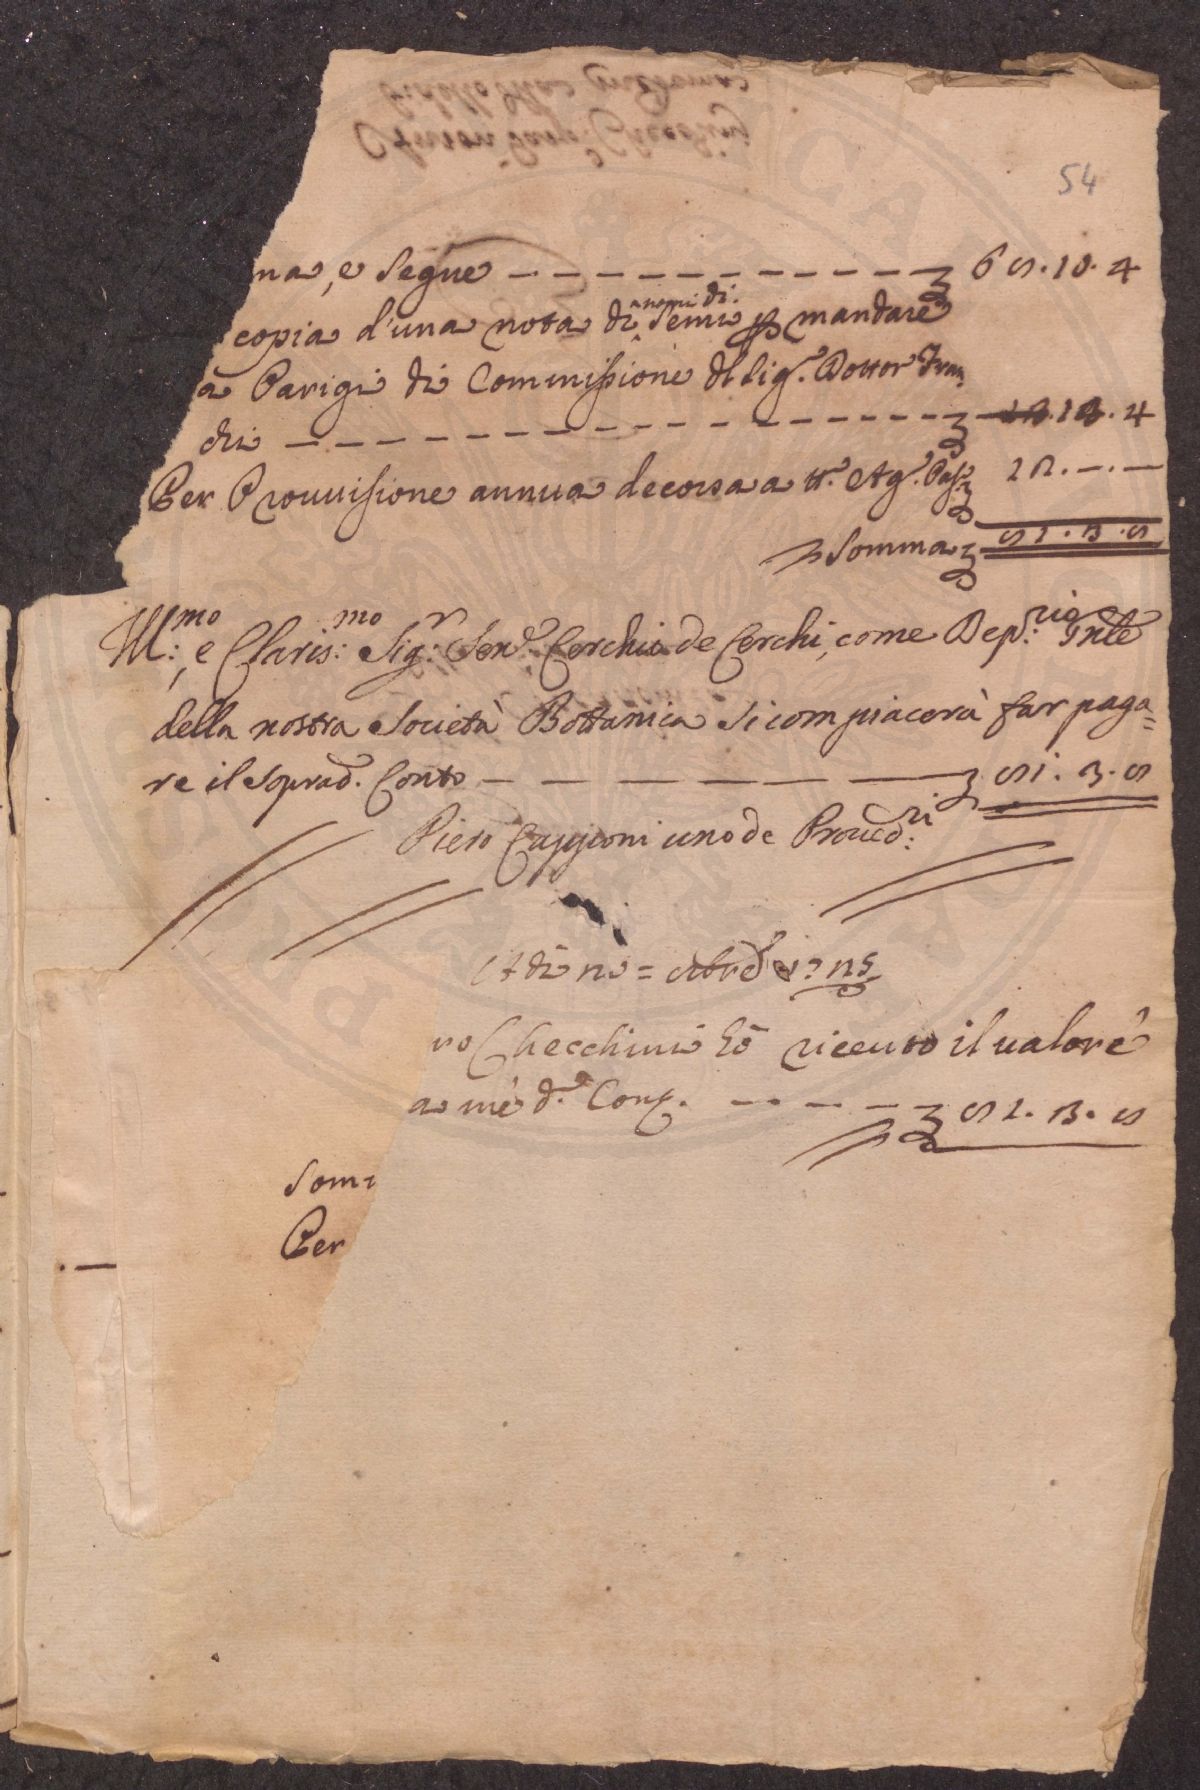 54
na, e segue — — — — — — — — — — 6 5. 10. 4
copia d'una nota di nomi di Semi p mandare
a Parigi di Commissione dl Sig.r Dottor Fran
chi — — — — — — — — — — — — . 4
Per Provvisione annua decorsa a tt.o Ag.o Pass.o 12. — . —
Somma 51. 3. 5
Ill:mo, e Claris:mo Sig:r Sen.e Cerchio de Cerchi, come Dep:rio Gnle
della nostra Società Bottanica si compiacerà far paga=
re il soprad.o Conto — — — — 51. 3. 5
Piero Caggioni uno de Proved:ri
Adi
ro Checchini hò riceuto il valore
a me d.o Con — — — — 51. 3. 5
Som
Per